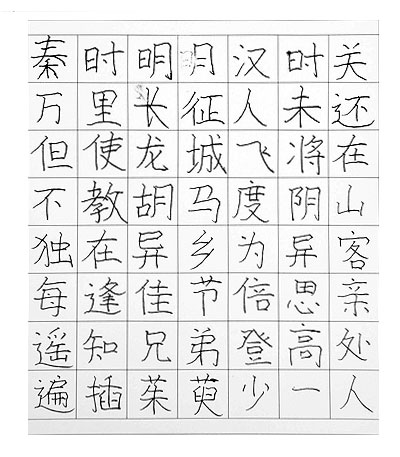 秦时明月汉时关
万里长征人未还
但使龙城飞将在
不教胡马度阴山
独在异乡为异客
每逢佳节倍思亲
遥知兄弟登高处
遍插茱萸少一人